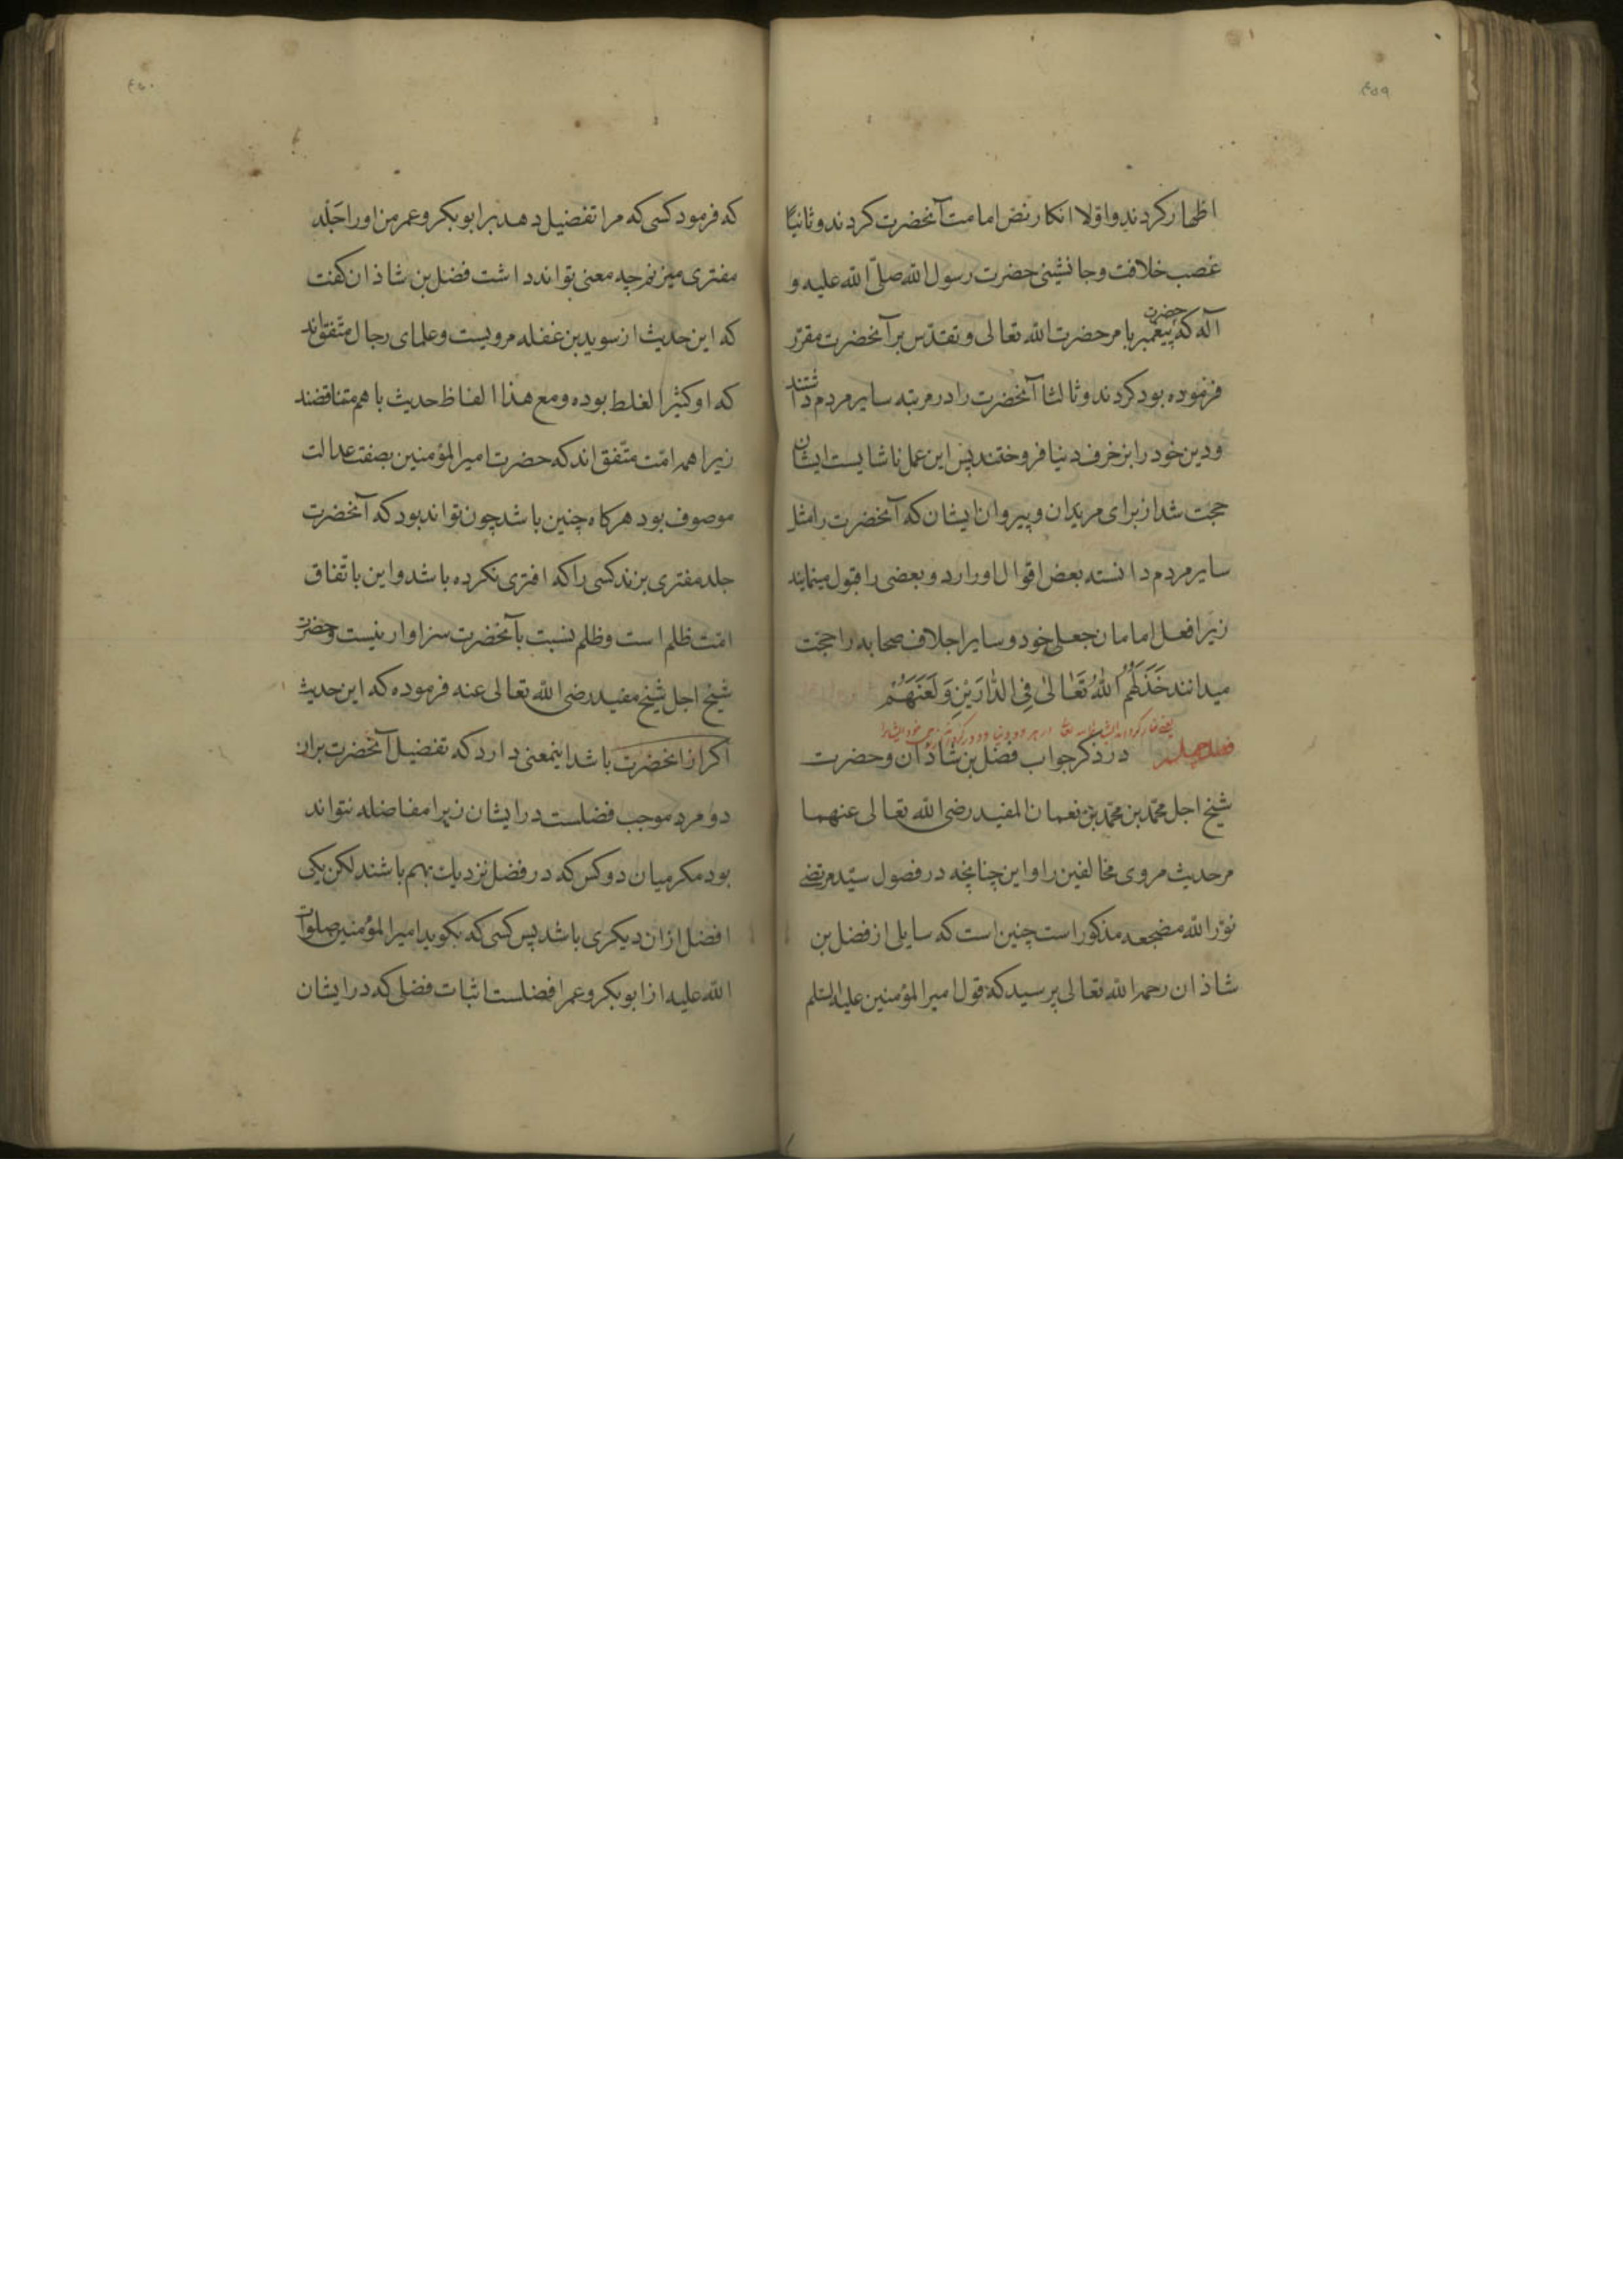 ۴۵۹
اظهار کردند و اولا انکار نص امامت آنحضرت کردند و ثانیًا
غصب خلافت و جانشینی حضرت رسول الله صلّی الله علیه و
آله که حضرت پیغمبر بامر حضرت الله تعالی و تقدّس بر آنحضرت مقرّر
فرموده بود کردند و ثالثا آنحضرت را در مرتبه سایر مردم داشتند
و دین خود را بزخرف دنیا فروختند پس این عمل ناشایست ایشان
حجت شد از برای مریدان و پیروان ایشان که آنحضرت را مثل
سایر مردم دانسته بعض اقوال او را رد و بعضی را قبول مینمایند
زیرا فعل امامان جعلی خود و سایر اجلاف صحابه را حجّت
میدانند خَذَلَهُمُ اللهُ تَعٰالیٰ فِی الدّٰارَیْنِ وَ لَعَنَهُمْ
فصل چهلم در ذکر جواب فضل بن شاذان و حضرت
شیخ اجل محمّد بن محمّد بن نعمان المفید رضی الله تعالی عنهما
مر حدیث مروی مخالفین را و این چنانچه در فصول سیّد مرتضی
نوّر الله مضجعه مذکور است چنین است که سایلی از فضل بن
شاذان رحمه الله تعالی پرسید که قول امیر المؤمنین علیه السّلم
۴۶۰
که فرمود کسی که مرا تفضیل دهد بر ابوبکر و عمر من او را جَلْد
مفتری میزنم چه معنی تواند داشت فضل بن شاذان کفت
که این حدیث از سوید بن غفله مرویست و علمای رجال متّفق‌اند
که او کثیر الغلط بوده و مع هذا الفاظ حدیث با هم متناقضند
زیرا همه امّت متّفق اند که حضرت امیر المؤمنین بصفت عدالت
موصوف بود هرکاه چنین باشد چون تواند بود که آنحضرت
جلد مفتری بزند کسی را که افتری نکرده باشد و این باتفاق
امّت ظلم است و ظلم نسبت بآنحضرت سزاوار نیست و حضرت
شیخ اجل شیخ مفید رضی الله تعالی عنه فرموده که این حدیث
اکر از انحضرت باشد اینمعنی دارد که تفضیل آنحضرت بر ان
دو مرد موجب فضلست در ایشان زیرا مفاضله نتواند
بود مکر میان دو کس که در فضل نزدیك بهم باشند لکن یکی
افضل از ان دیکری باشد پس کسی که بکوید امیر المؤمنین صلوات
الله علیه از ابوبکر و عمر افضلست اثبات فضلی که در ایشان